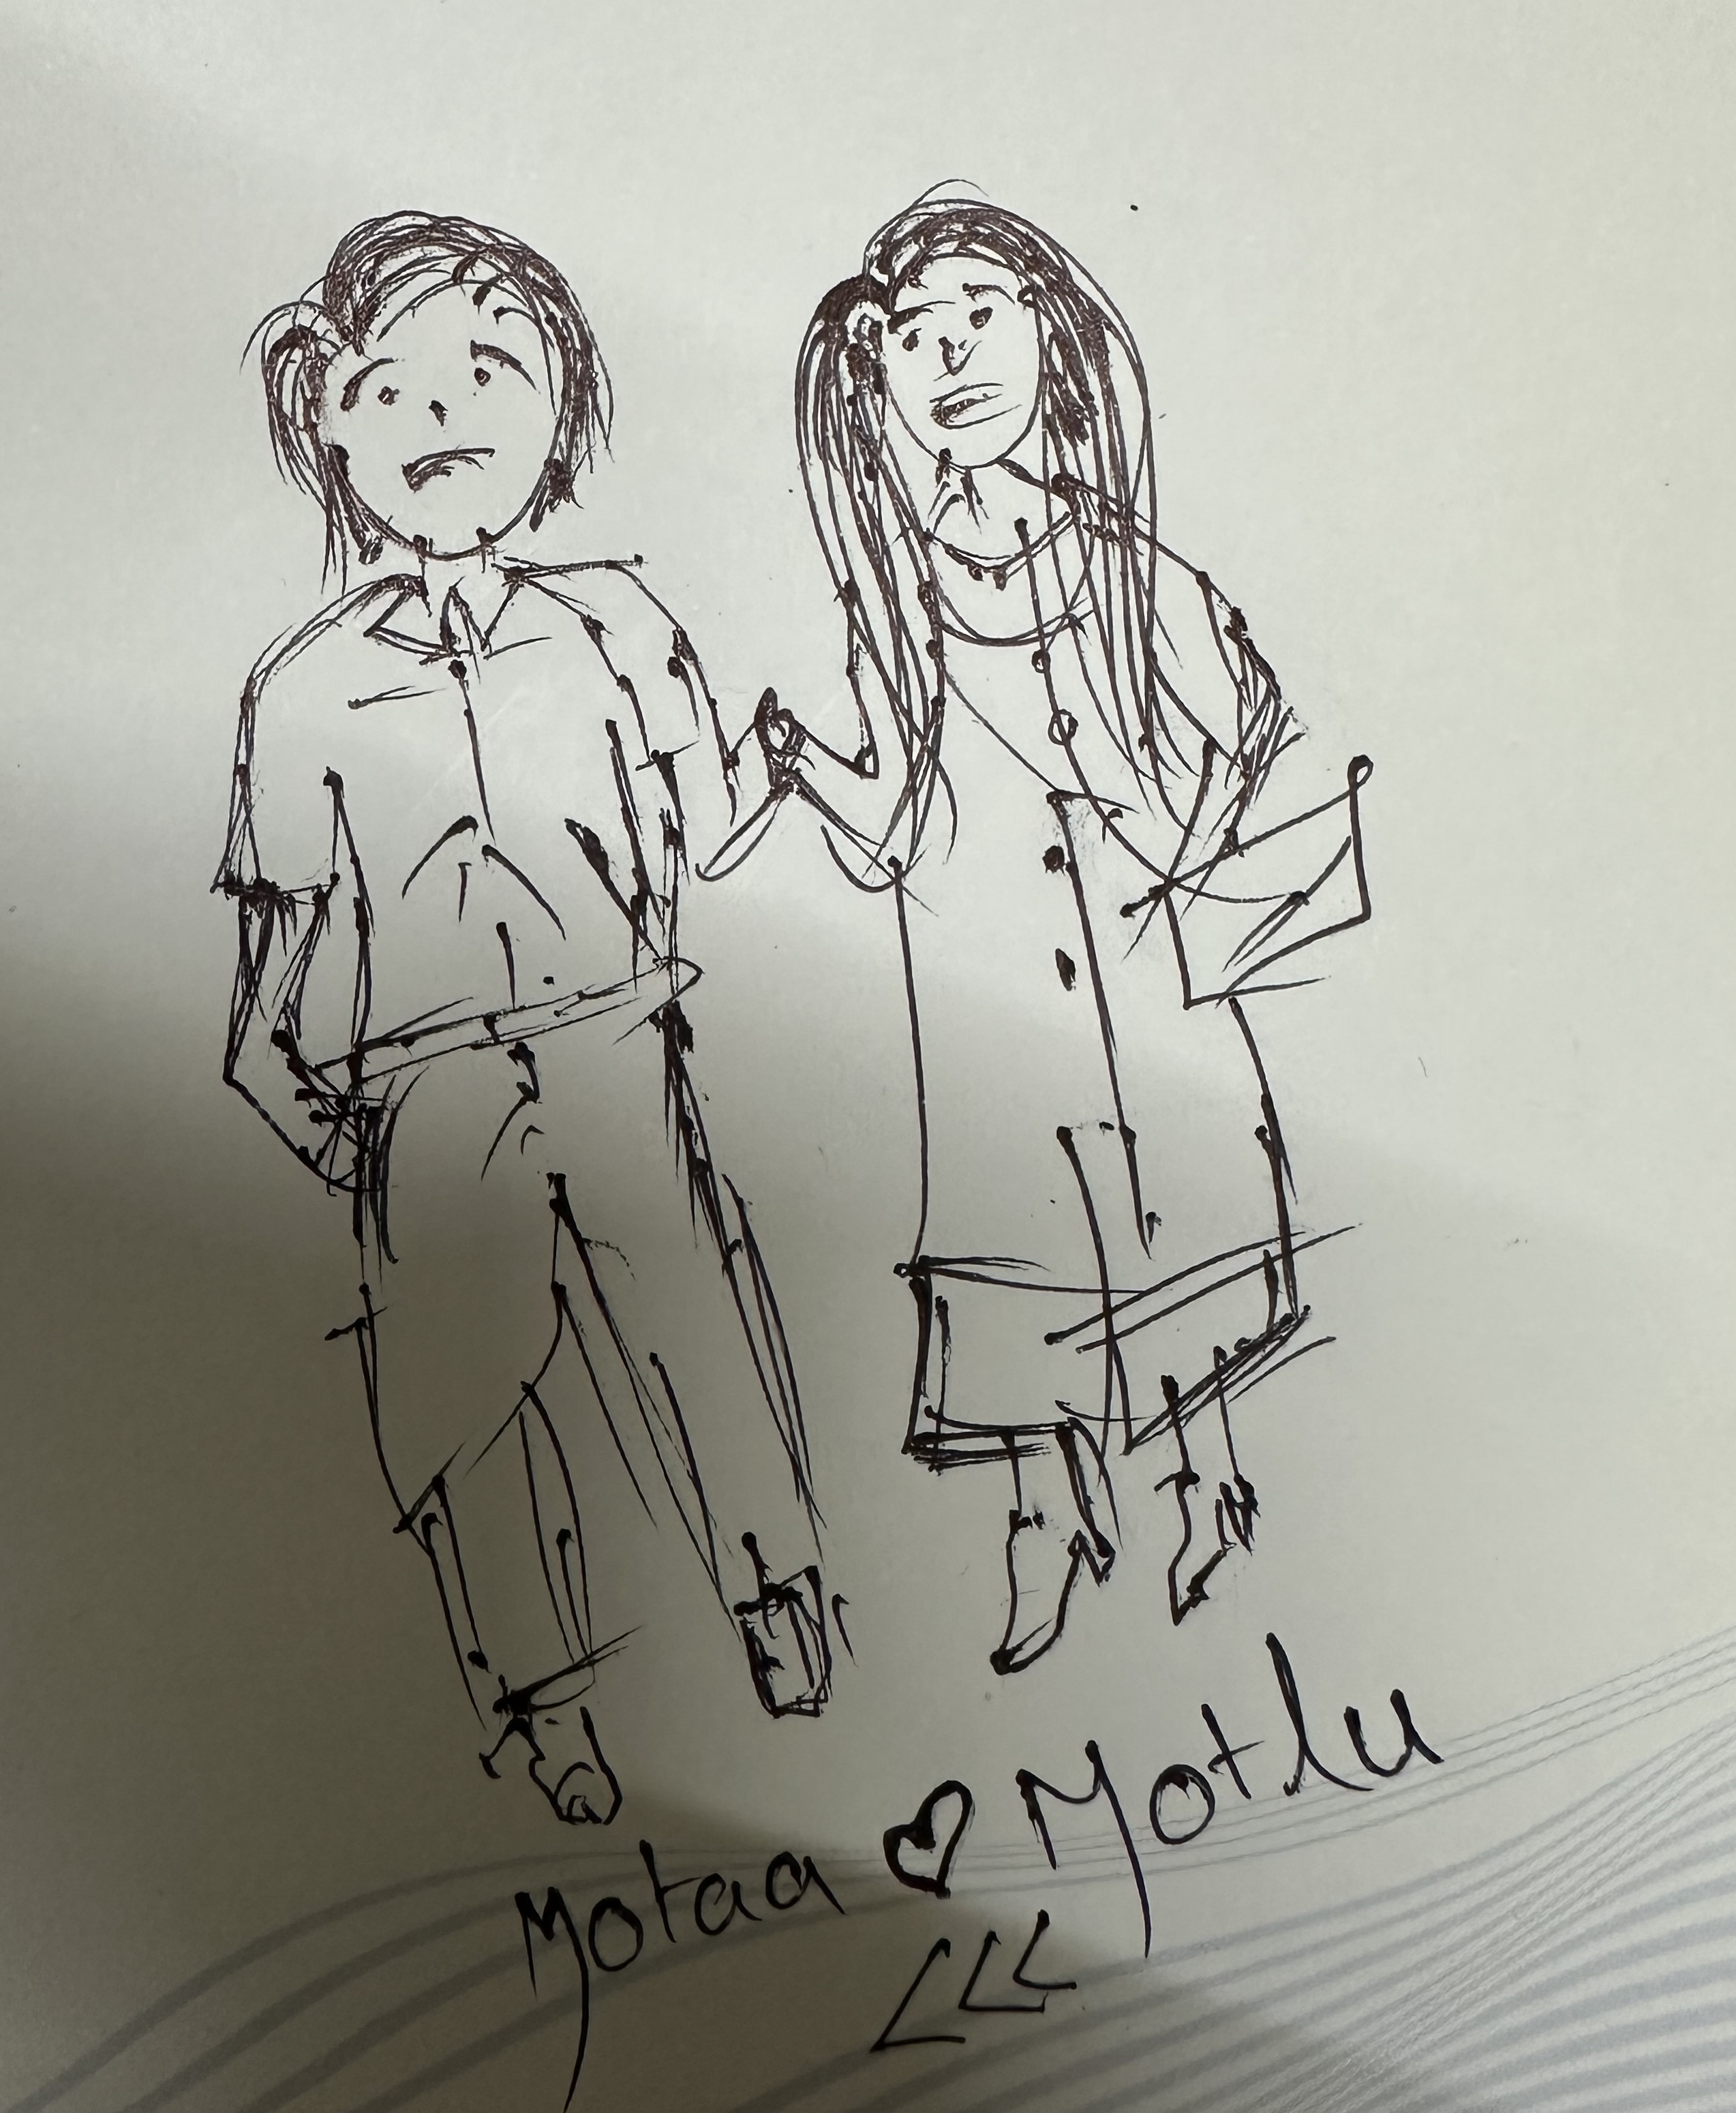 Motaa ♡ Motlu